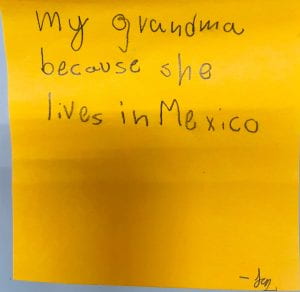 My grandma
because she
lives in Mexico